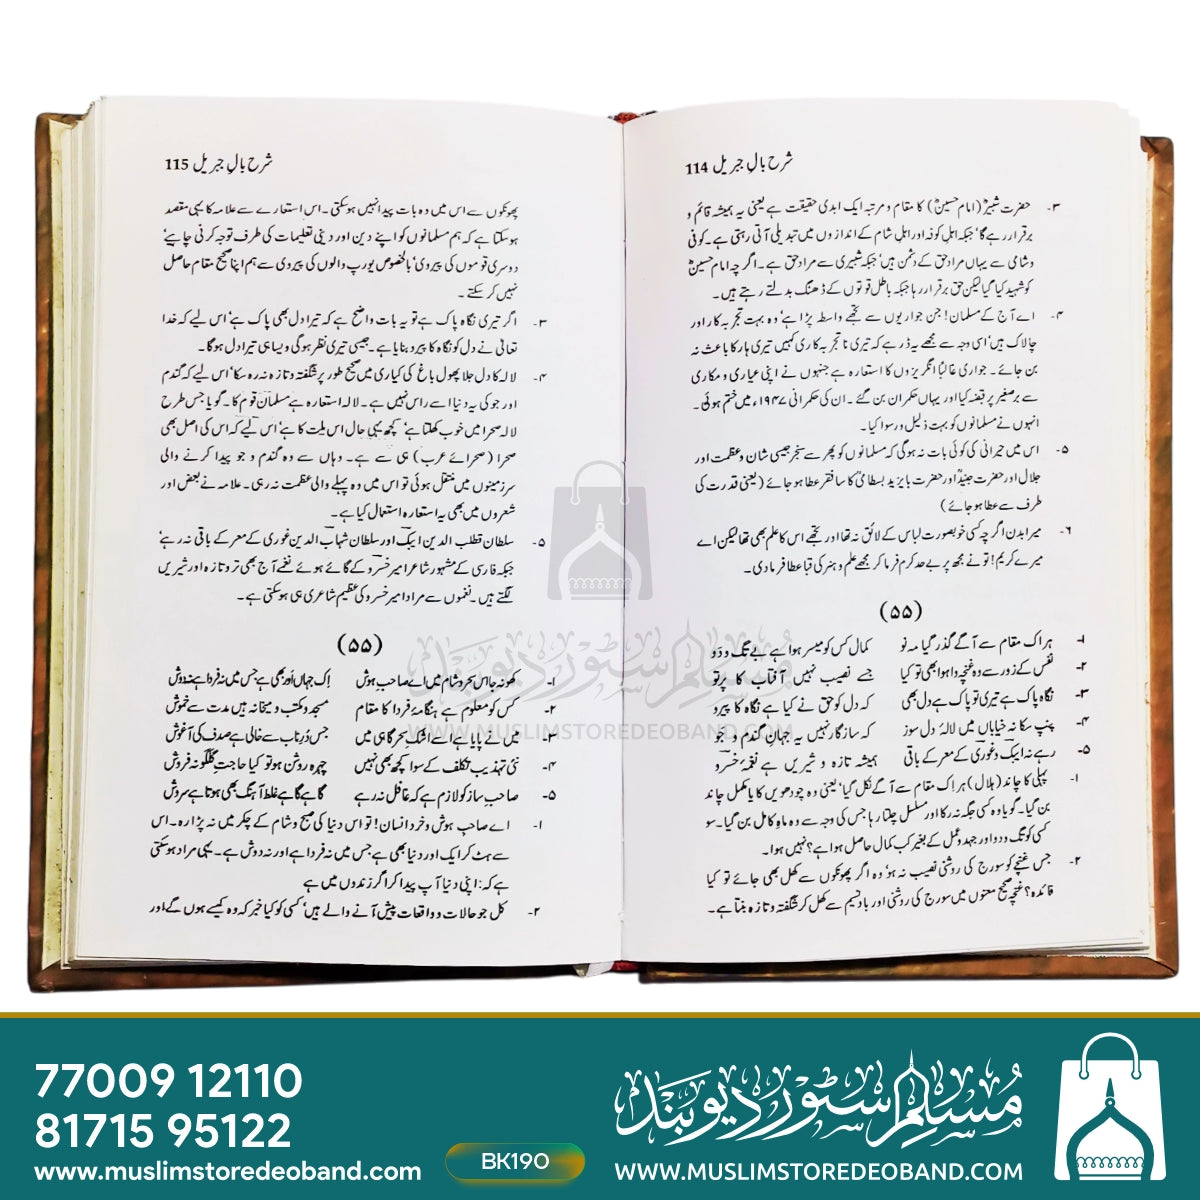 شرح بالِ جبریل 114
۳۔ حضرت شبیرؓ (امام حسینؓ) کا مقام و مرتبہ ایک ابدی حقیقت ہے یعنی یہ ہمیشہ قائم و
برقرار رہے گا' جبکہ اہلِ کوفہ اور اہلِ شام کے اندازوں میں تبدیلی آتی رہتی ہے۔ کوفی
و شامی سے یہاں مراد حق کے دشمن ہیں' جبکہ شبیری سے مراد حق ہے۔ اگرچہ امام حسینؓ
کو شہید کیا گیا لیکن حق برقرار رہا جبکہ باطل قوتوں کے ڈھنگ بدلتے رہتے ہیں۔
۴۔ اے آج کے مسلمان! جن جواریوں سے تجھے واسطہ پڑا ہے' وہ بہت تجربہ کار اور
چالاک ہیں' اسی وجہ سے مجھے یہ ڈر ہے کہ تیری ناتجربہ کاری کہیں تیری ہار کا باعث نہ
بن جائے۔ جواری غالباً انگریزوں کا استعارہ ہے جنہوں نے اپنی عیاری و مکاری
سے برصغیر پر قبضہ کیا اور یہاں حکمران بن گئے۔ ان کی حکمرانی ۱۹۴۷ء میں ختم ہوئی۔
انہوں نے مسلمانوں کو بہت ذلیل و رسوا کیا۔
۵۔ اس میں حیرانی کی کوئی بات نہ ہوگی کہ مسلمانوں کو پھر سے سنجر جیسی شان و عظمت اور
جلال اور حضرت جنیدؒ اور حضرت بایزید بسطامیؒ کا سا فقر عطا ہو جائے (یعنی قدرت کی
طرف سے عطا ہو جائے)
۶۔ میرا بدن اگرچہ کسی خوبصورت لباس کے لائق نہ تھا اور تجھے اس کا علم بھی تھا لیکن اے
میرے کریم! تو نے مجھ پر بے حد کرم فرما کر مجھے علم و ہنر کی قبا عطا فرما دی۔
(۵۵)
۱۔ ہر اک مقام سے آگے گذر گیا مہِ نو کمال کس کو میسر ہوا ہے بے تگ و دَو
۲۔ نفس کے زور سے وہ غنچہ وا ہوا بھی تو کیا جسے نصیب نہیں آفتاب کا پرتو
۳۔ نگاہ پاک ہے تیری تو پاک ہے دل بھی کہ دل کو حق نے کیا ہے نگاہ کا پیرو
۴۔ پنپ سکا نہ خیاباں میں لالۂ دل سوز کہ سازگار نہیں یہ جہانِ گندم و جو
۵۔ رہے نہ ایبک و غوری کے معرکے باقی ہمیشہ تازہ و شیریں ہے نغمۂ خسرو
۱۔ پہلی کا چاند (ہلال) ہر اِک مقام سے آگے نکل گیا' یعنی وہ چودھویں کا یا مکمل چاند
بن گیا۔ گویا وہ کسی جگہ نہ رکا اور مسلسل چلتا رہا جس کی وجہ سے وہ ماہِ کامل بن گیا۔ سو
کسی کو تگ و دو اور جہد و عمل کے بغیر کب کمال حاصل ہوا ہے؟ نہیں ہوا۔
۲۔ جس غنچے کو سورج کی روشنی نصیب نہ ہو' وہ اگر پھونکوں سے کھل بھی جائے تو کیا
فائدہ؟ غنچہ صحیح معنوں میں سورج کی روشنی اور بادِ نسیم سے کھل کر شگفتہ و تازہ بنتا ہے۔
شرح بالِ جبریل 115
پھونکوں سے اس میں وہ بات پیدا نہیں ہو سکتی۔ اس استعارے سے علامہ کا یہی مقصد
ہو سکتا ہے کہ ہم مسلمانوں کو اپنے دین اور دینی تعلیمات کی طرف توجہ کرنی چاہیے'
دوسری قوموں کی پیروی' بالخصوص یورپ والوں کی پیروی سے ہم اپنا صحیح مقام حاصل
نہیں کر سکتے۔
۳۔ اگر تیری نگاہ پاک ہے تو یہ بات واضح ہے کہ تیرا دل بھی پاک ہے' اس لیے کہ خدا
تعالیٰ نے دل کو نگاہ کا پیرو بنایا ہے۔ جیسی تیری نظر ہوگی ویسا ہی تیرا دل ہوگا۔
۴۔ لالہ کا دل جلا پھول باغ کی کیاری میں صحیح طور پر شگفتہ و تازہ نہ رہ سکا' اس لیے کہ گندم
اور جو کی یہ دنیا اسے راس نہیں ہے۔ لالہ استعارہ ہے مسلمان قوم کا۔ گویا جس طرح
لالہ صحرا میں خوب کھلتا ہے' کچھ یہی حال اس ملت کا ہے' اس لیے کہ اس کی اصل بھی
صحرا (صحرائے عرب) ہی سے ہے۔ وہاں سے وہ گندم و جو پیدا کرنے والی
سرزمینوں میں منتقل ہوئی تو اس میں وہ پہلے والی عظمت نہ رہی۔ علامہ نے بعض اور
شعروں میں بھی یہ استعارہ استعمال کیا ہے۔
۵۔ سلطان قطب الدین ایبک اور سلطان شہاب الدین غوری کے معرکے باقی نہ رہے'
جبکہ فارسی کے مشہور شاعر امیر خسرو کے گائے ہوئے نغمے آج بھی تر و تازہ اور شیریں
لگتے ہیں۔ نغموں سے مراد امیر خسرو کی عظیم شاعری ہی ہو سکتی ہے۔
(۵۵)
۱۔ کھو نہ جا اس سحر و شام میں اے صاحبِ ہوش اِک جہاں اور بھی ہے جس میں نہ فردا ہے نہ دوش
۲۔ کس کو معلوم ہے ہنگامۂ فردا کا مقام مسجد و مکتب و میخانہ ہیں مدت سے خموش
۳۔ میں نے پایا ہے اُسے اشکِ سحرگاہی میں جس دُرِ ناب سے خالی ہے صدف کی آغوش
۴۔ نئی تہذیب تکلف کے سوا کچھ بھی نہیں چہرہ روشن ہو تو کیا حاجتِ گلگونہ فروش
۵۔ صاحبِ ساز کو لازم ہے کہ غافل نہ رہے گاہے گاہے غلط آہنگ بھی ہوتا ہے سروش
۱۔ اے صاحبِ ہوش و خرد انسان! تو اس دنیا کی صبح و شام کے چکر میں نہ پڑا رہ۔ اس
سے ہٹ کر ایک اور دنیا بھی ہے جس میں نہ فردا ہے اور نہ دوش ہے۔ یہی مراد ہو سکتی
ہے کہ: اپنی دنیا آپ پیدا کر اگر زندوں میں ہے
۲۔ کل جو حالات و واقعات پیش آنے والے ہیں' کسی کو کیا خبر کہ وہ کیسے ہوں گے اور
مسلم سٹور دیوبند
WWW.MUSLIMSTOREDEOBAND.COM
77009 12110
81715 95122
www.muslimstoredeoband.com
BK190
مسلم سٹور دیوبند
WWW.MUSLIMSTOREDEOBAND.COM